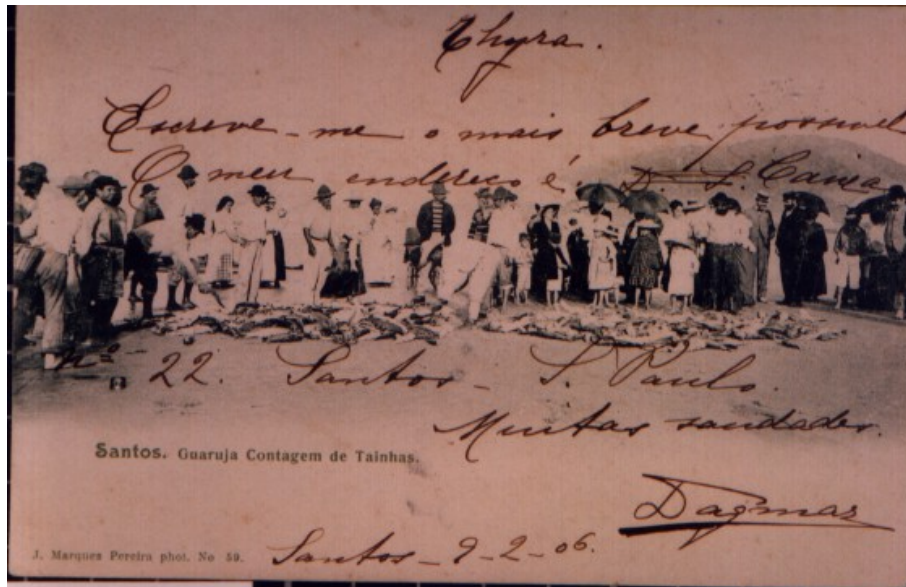 Thyra.
Escreve-me o mais breve possivel
O meu endereço é D. L. Camra
nº 22. Santos - S. Paulo.
Muitas saudades.
Santos. Guaruja Contagem de Tainhas.
Dagmar
J. Marques Pereira phot. No 59.
Santos - 9-2-06.